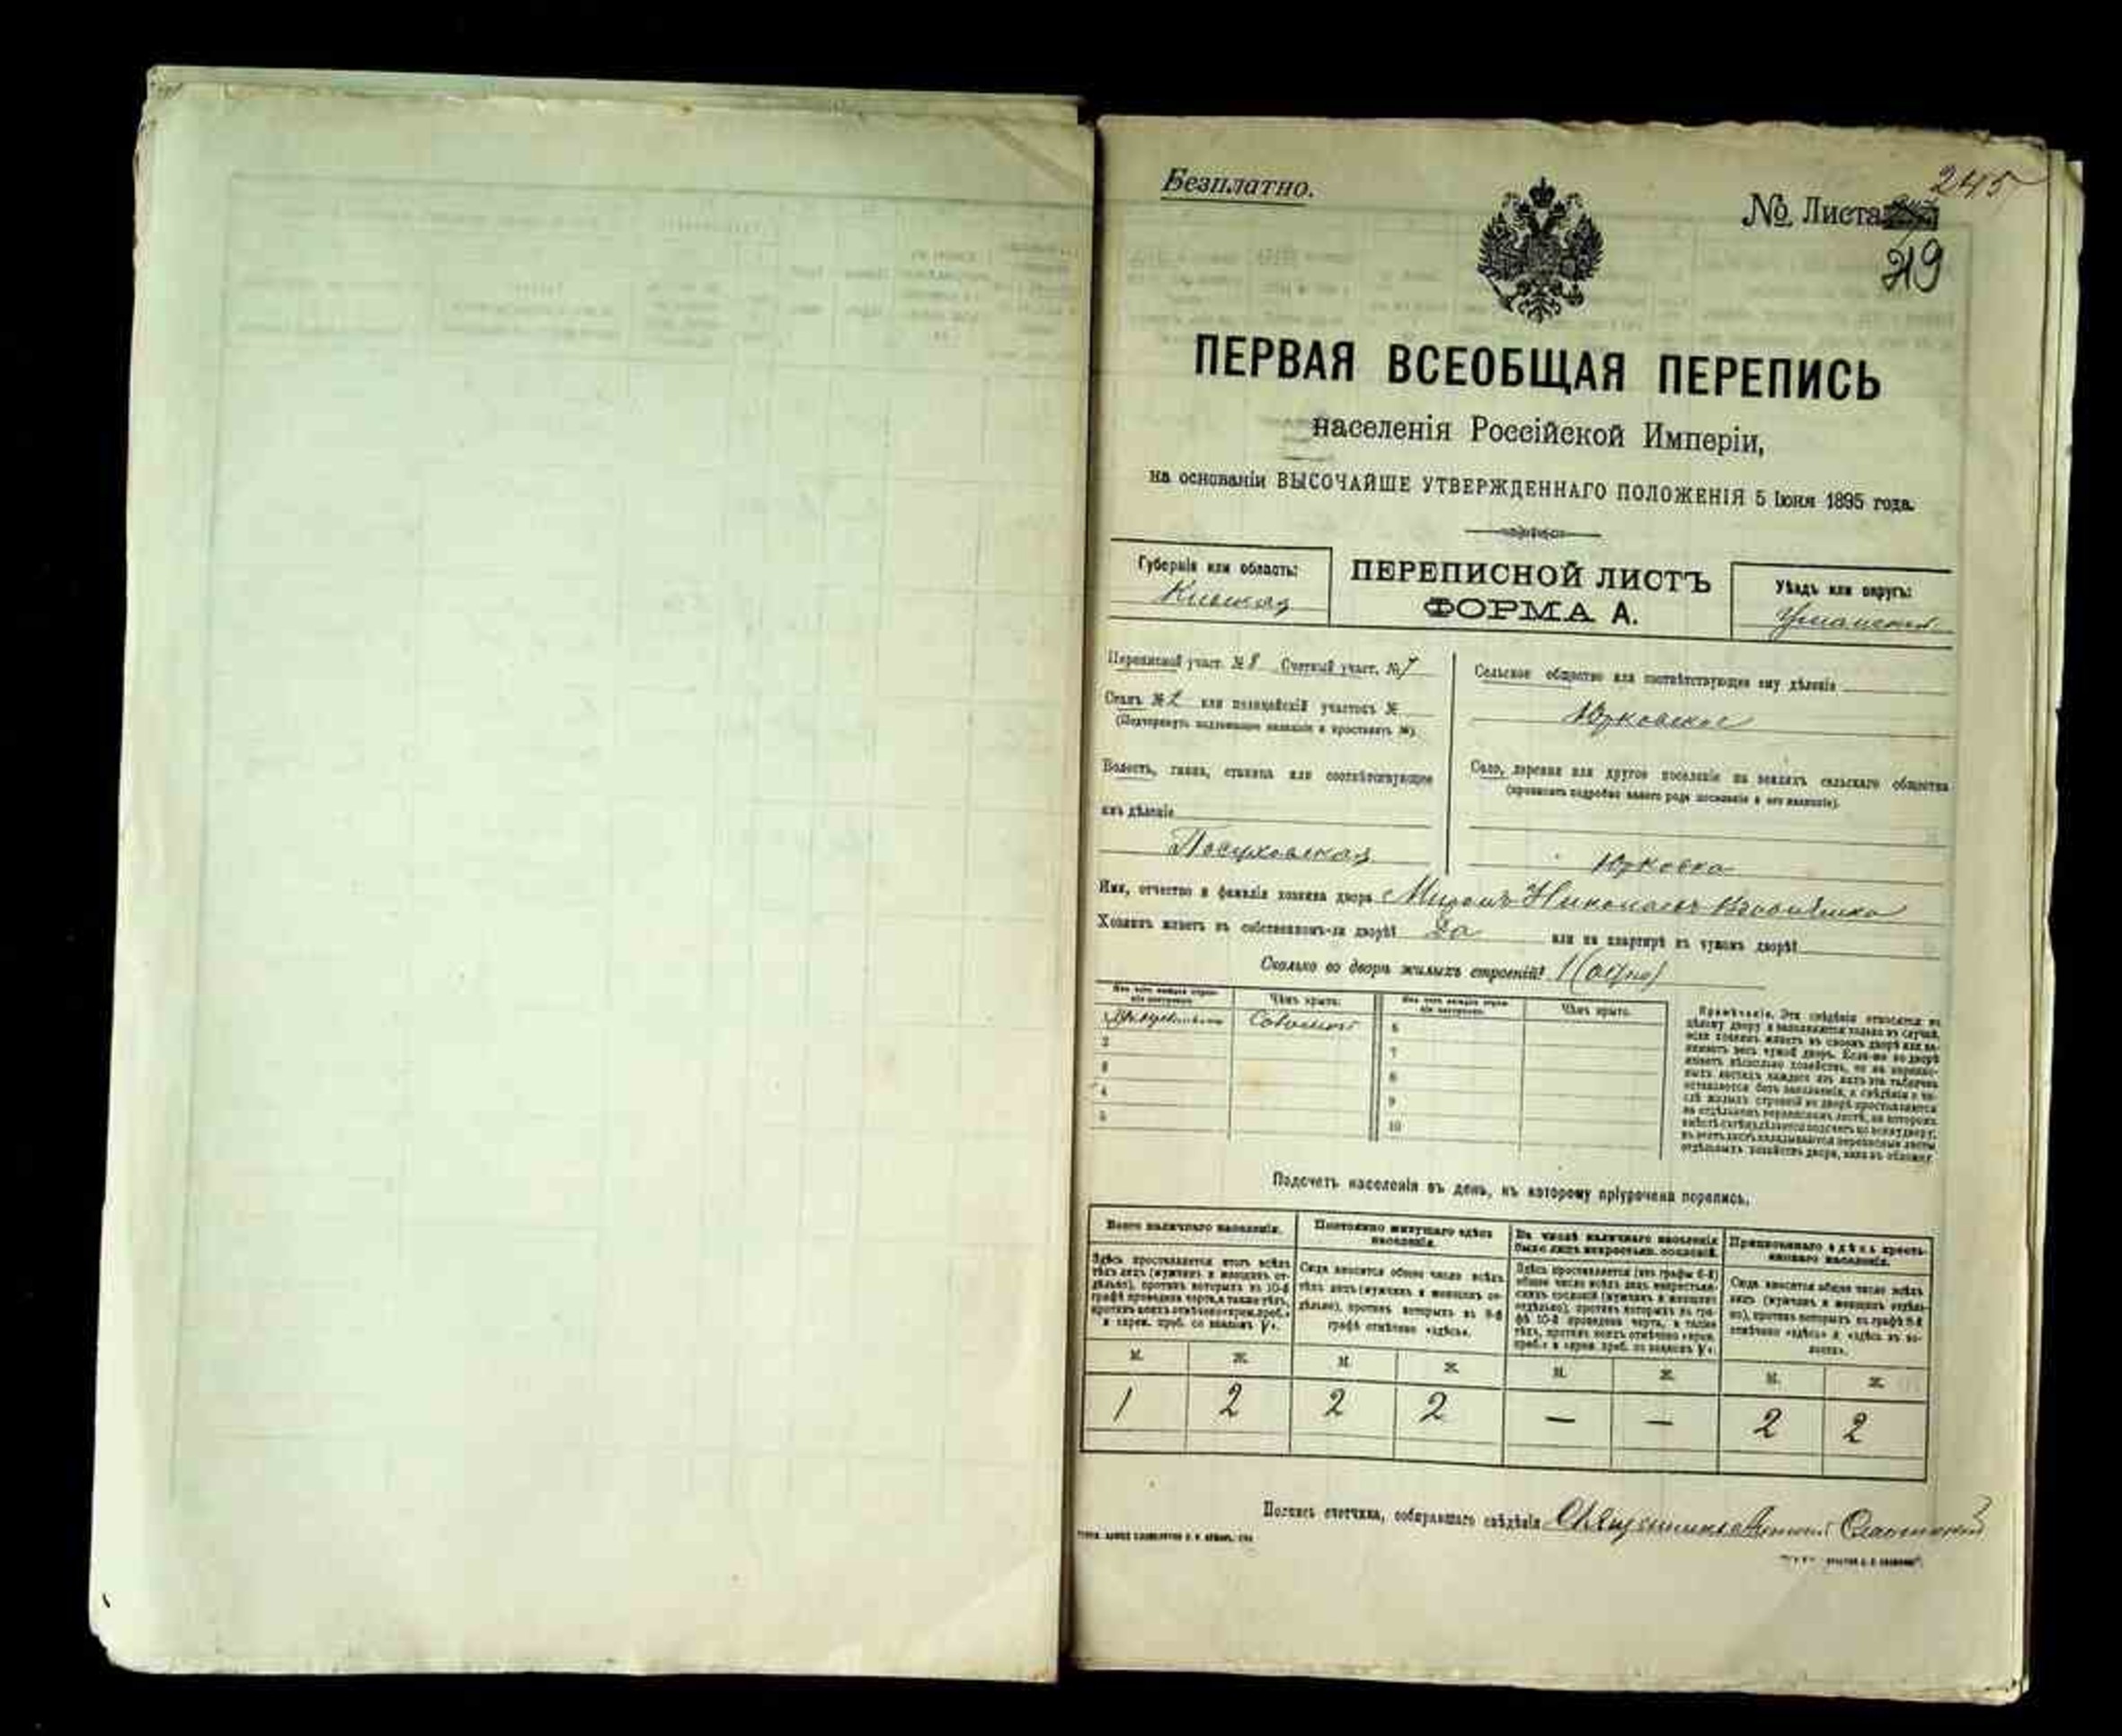 Безплатно.
245
№ Листа
219
ПЕРВАЯ ВСЕОБЩАЯ ПЕРЕПИСЬ
населенія Россійской Имперіи,
на основаніи ВЫСОЧАЙШЕ УТВЕРЖДЕННАГО ПОЛОЖЕНІЯ 5 Іюня 1895 года.
Губернія или область:
Кіевская
ПЕРЕПИСНОЙ ЛИСТЪ
ФОРМА А.
Уѣздъ или округъ:
Уманскій
Переписной участ. № 8 Счетный участ. № 7
Станъ № 2 или полицейскій участокъ №
(Подчеркнуть надлежащее названіе и проставить №)
Волость, гмина, станица или соотвѣтствующее
имъ дѣленіе
Посуховская
Сельское общество или соотвѣтствующее ему дѣленіе
Юрковское
Село, деревня или другое поселеніе на земляхъ сельскаго общества
(прописать подробно какого рода поселеніе и его названіе).
Юрковка
Имя, отчество и фамилія хозяина двора Николаевъ
Хозяинъ живетъ въ собственномъ-ли дворѣ? Да или на квартирѣ въ чужомъ дворѣ?
Сколько во дворѣ жилыхъ строеній? 1 (одно)
Изъ чего каждое строеніе построено. Чѣмъ крыто: Изъ чего каждое строеніе построено. Чѣмъ крыто.
Соломою 6
2 7
3 8
4 9
5 10
Примѣчаніе. Эти свѣдѣнія относятся къ
цѣлому двору и заполняются только въ случаѣ,
если хозяинъ живетъ въ своемъ дворѣ или за-
нимаетъ весь чужой дворъ. Если-же во дворѣ
имѣетъ нѣсколько хозяйствъ, то на перепис-
ныхъ листахъ каждаго изъ нихъ эта табличка
оставляется безъ заполненія, а свѣдѣнія о чи-
слѣ жилыхъ строеній во дворѣ проставляются
на отдѣльномъ переписномъ листѣ, на которомъ
вмѣстѣ съ тѣмъ дѣлается подсчетъ по всему двору;
въ этотъ листъ вкладываются переписные листы
отдѣльныхъ хозяйствъ двора, какъ въ обложку.
Подсчетъ населенія въ день, къ которому пріурочена перепись.
Всего наличнаго населенія.
Здѣсь проставляется итогъ всѣхъ
тѣхъ лицъ (мужчинъ и женщинъ от-
дѣльно), противъ которыхъ въ 10-й
графѣ проведена черта, а также тѣхъ,
противъ коихъ отмѣчено «врем. преб.»
и «врем. преб. со знакомъ V».
Постоянно живущаго здѣсь
населенія.
Сюда вносится общее число всѣхъ
тѣхъ лицъ (мужчинъ и женщинъ от-
дѣльно), противъ которыхъ въ 9-й
графѣ отмѣчено «здѣсь».
Въ числѣ наличнаго населенія
было лицъ некрестьян. сословій.
Здѣсь проставляется (изъ графы 6-й)
общее число всѣхъ лицъ некрестьян-
скихъ сословій (мужчинъ и женщинъ
отдѣльно), противъ которыхъ въ гра-
фѣ 10-й проведена черта, а также
тѣхъ, противъ коихъ отмѣчено «врем.
преб.» и «врем. преб. со знакомъ V».
Приписаннаго здѣсь кресть-
янскаго населенія.
Сюда вносится общее число всѣхъ
лицъ (мужчинъ и женщинъ отдѣль-
но), противъ которыхъ въ графѣ 8-й
отмѣчено «здѣсь» и «здѣсь въ во-
лости».
М. Ж. М. Ж. М. Ж. М. Ж.
1 2 2 2 — — 2 2
Подпись счетчика, собиравшаго свѣдѣнія Священникъ